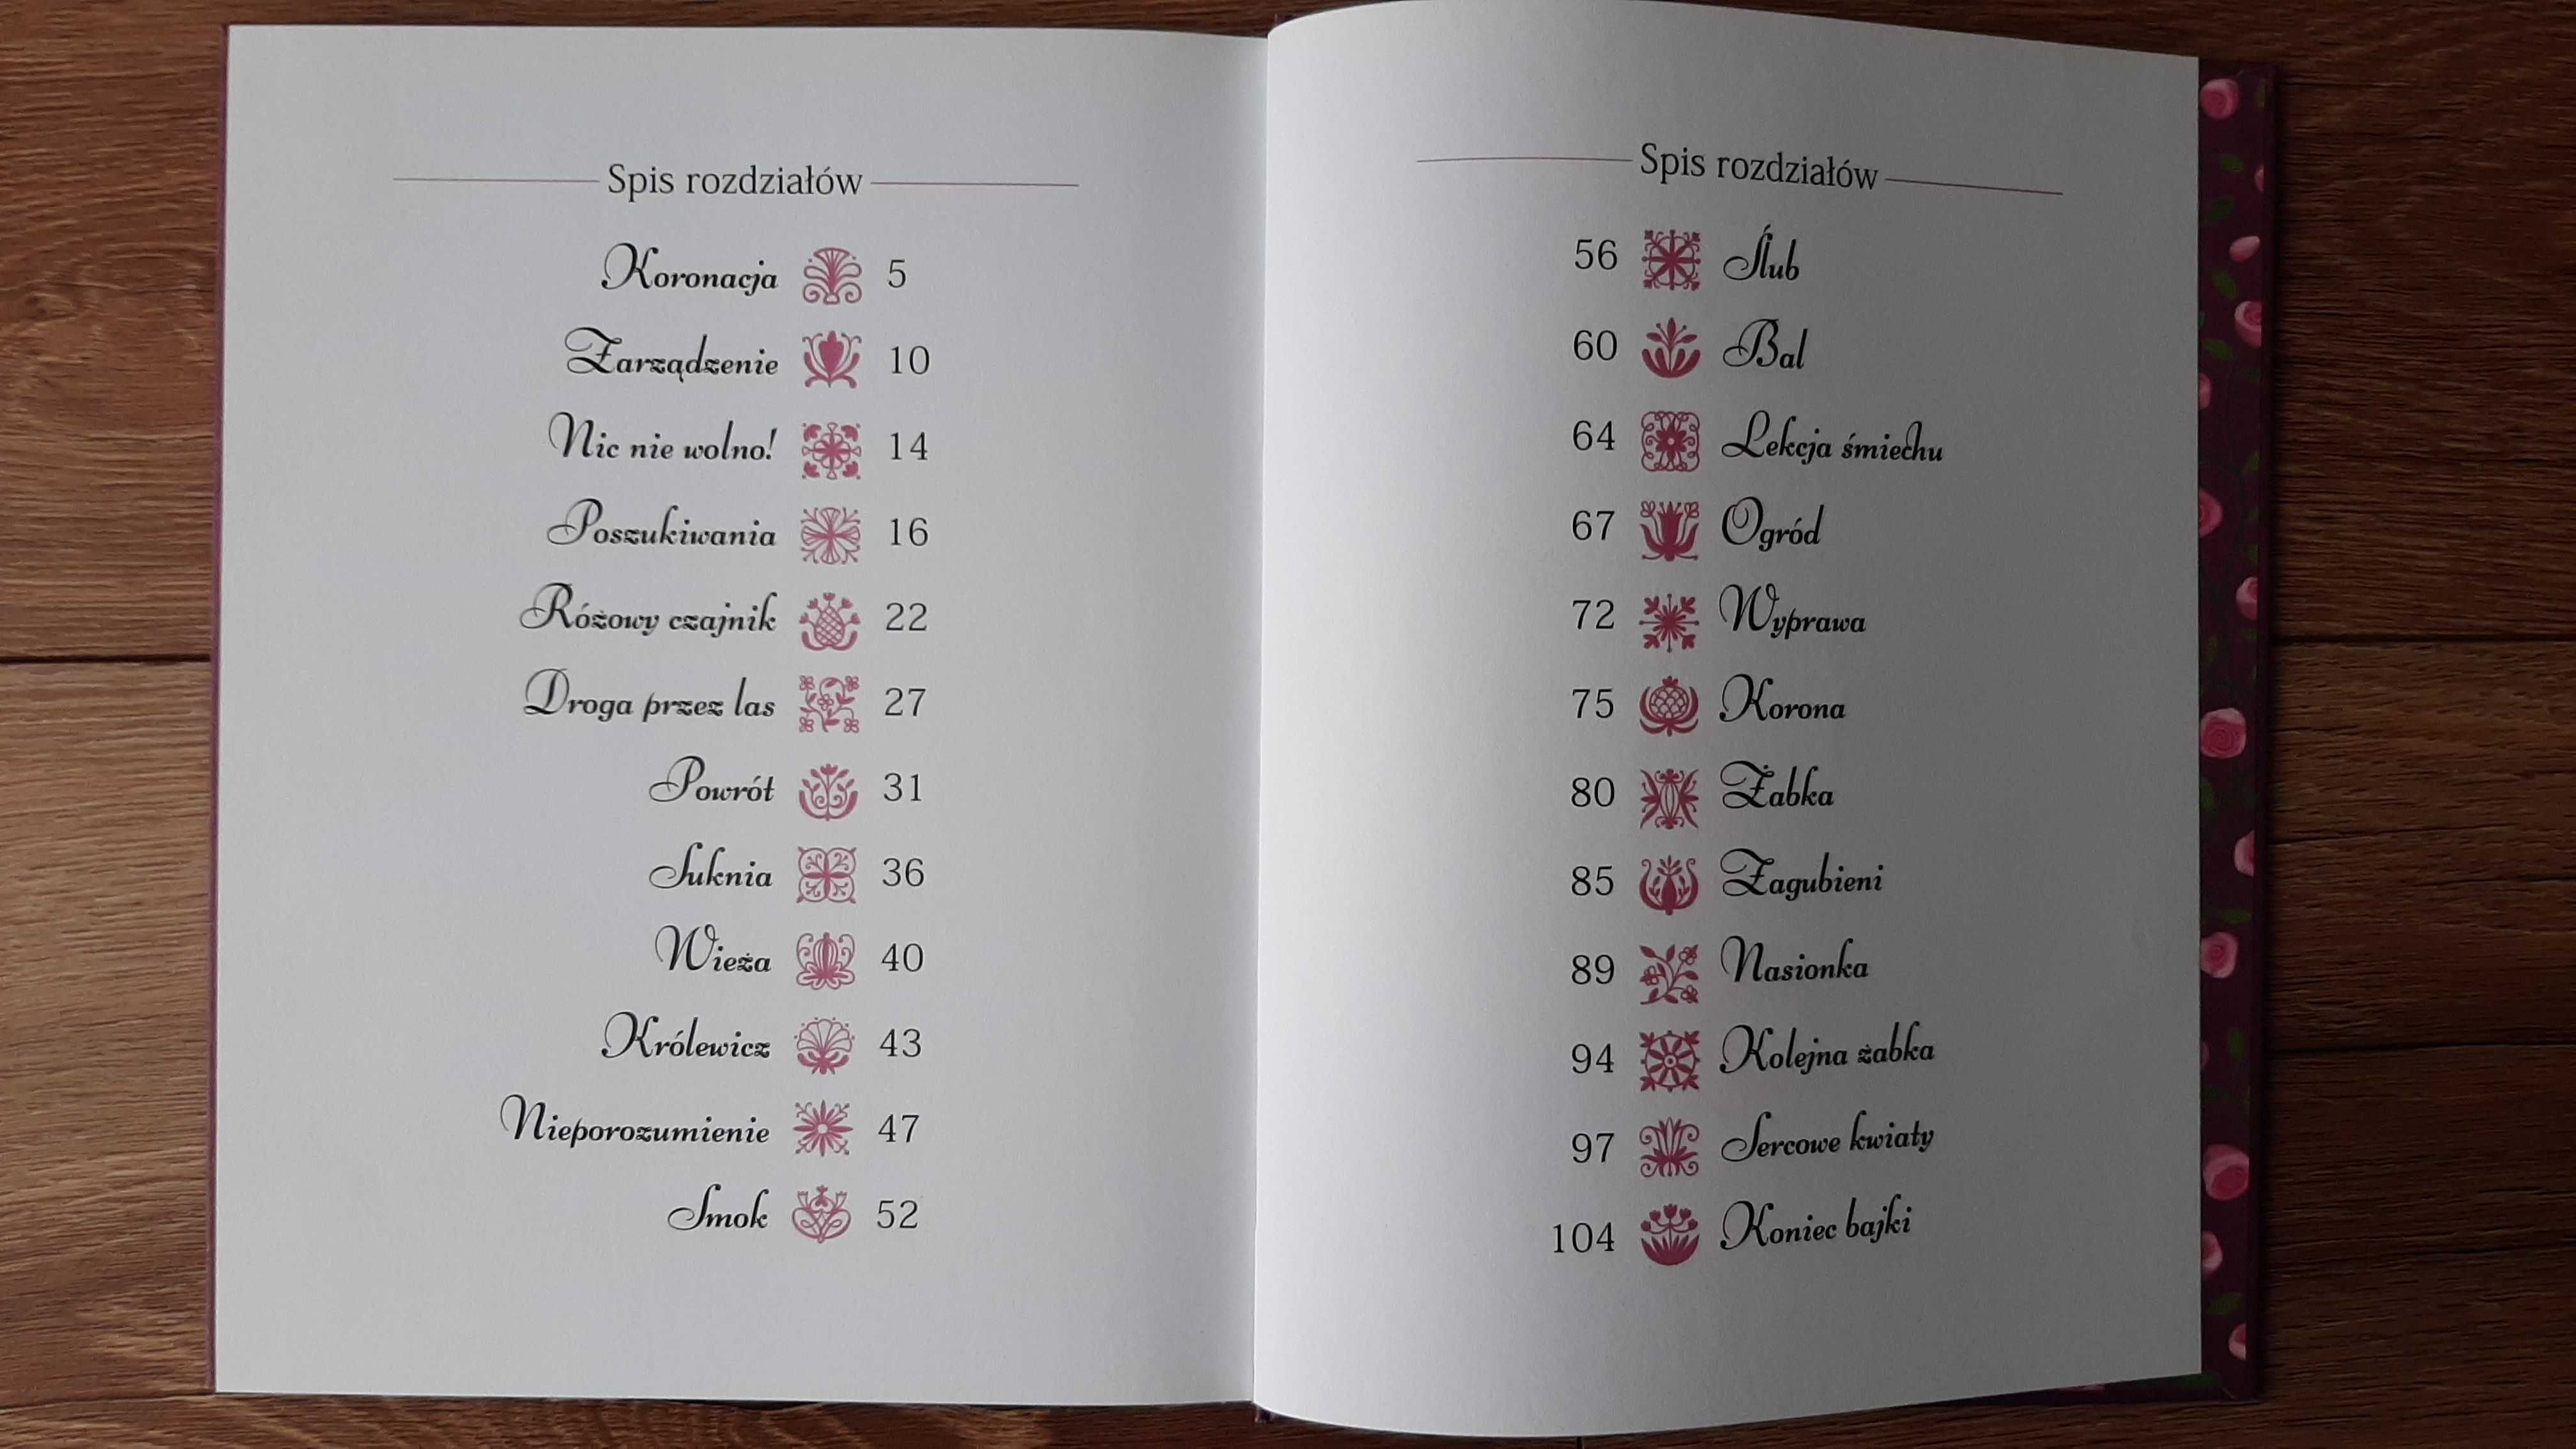 Spis rozdziałów
Koronacja 5
Zarządzenie 10
Nic nie wolno! 14
Poszukiwania 16
Różowy czajnik 22
Droga przez las 27
Powrót 31
Suknia 36
Wieża 40
Królewicz 43
Nieporozumienie 47
Smok 52
Spis rozdziałów
56 Ślub
60 Bal
64 Lekcja śmiechu
67 Ogród
72 Wyprawa
75 Korona
80 Żabka
85 Zagubieni
89 Nasionka
94 Kolejna żabka
97 Sercowe kwiaty
104 Koniec bajki